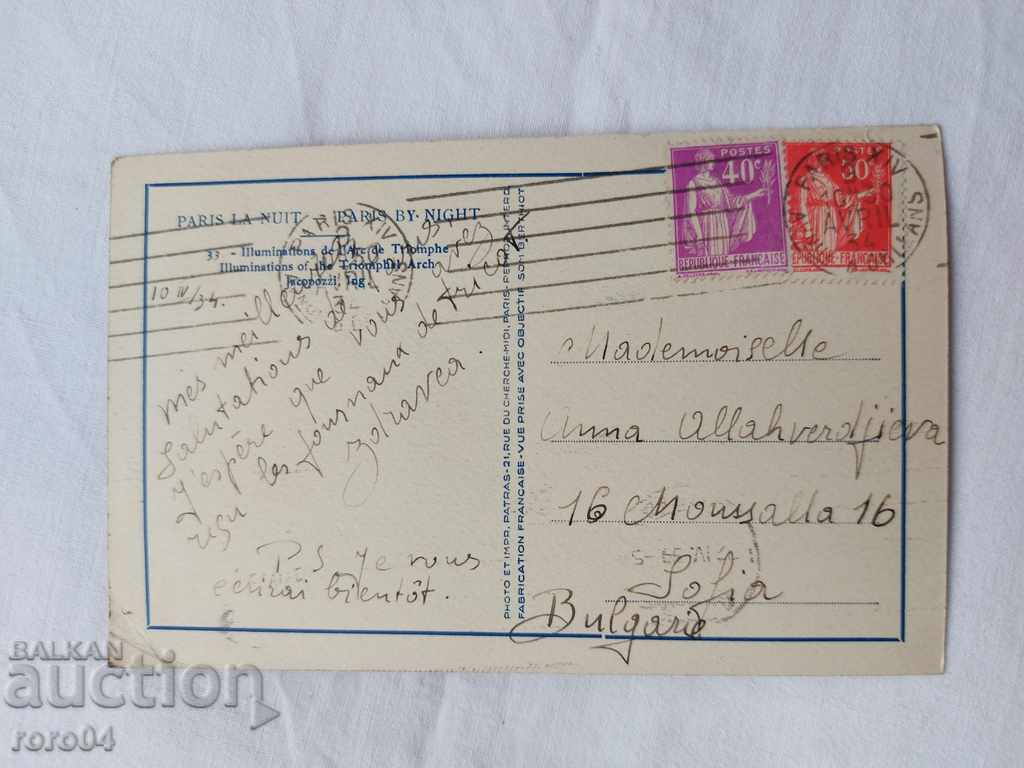 PARIS LA NUIT - PARIS BY NIGHT
33 - Illuminations de l'Arc de Triomphe
Illuminations of the Triomphal Arch
Jacopozzi, Ing.
10 IV/34.
mes
salutations et
j'espère que vous avez
reçu les journaux de tricot
Zdravca.
P.S. Je vous
écrirai bientôt.
PHOTO ET IMPR. PATRAS-21, RUE DU CHERCHE-MIDI, PARIS
FABRICATION FRANÇAISE-VUE PRISE AVEC OBJECTIF SOM BERTHIOT
POSTES
40c
RÉPUBLIQUE-FRANÇAISE
POSTES
RÉPUBLIQUE-FRANÇAISE
PARIS XIV
AVRIL
Mademoiselle
Anna Allahverdjieva
16 Moussalla 16
Sofia
Bulgarie
BALKAN
auction
roro04